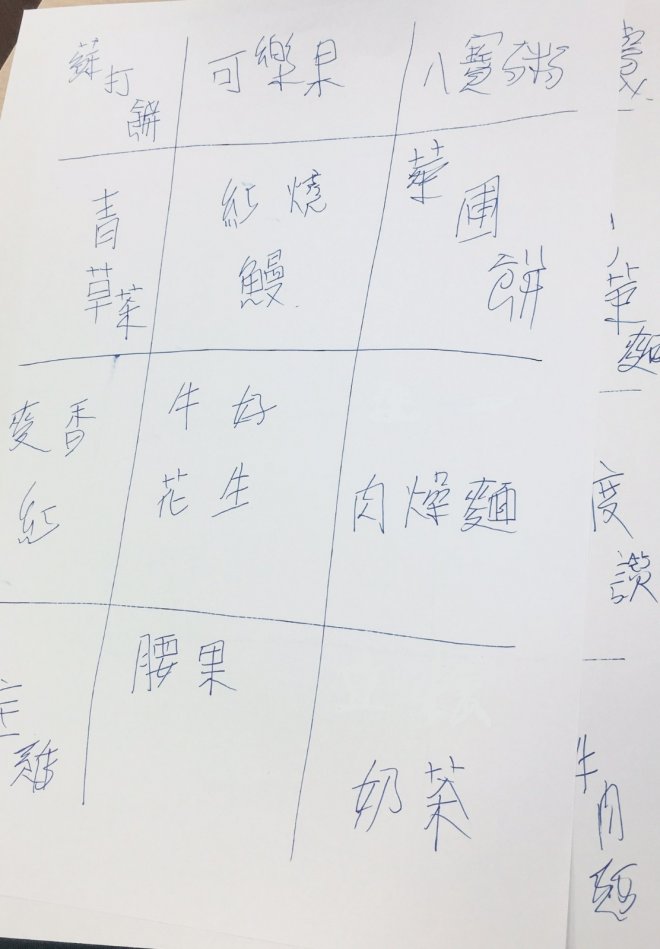 蘇打餅
可樂果
八寶粥
青草茶
紅燒鰻
菜圃餅
菜麵
麥香紅
牛好花生
肉燥麵
度讚
雞
腰果
奶茶
牛肉麵